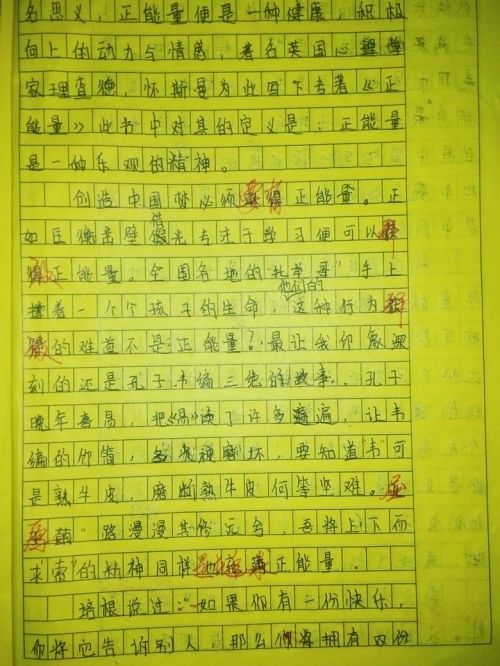 名思义，正能量便是一种健康，积极
向上的动力与情感，著名英国心理学
家理查德 怀斯曼为此写下专著《正
能量》此书中对其的定义是：正能量
是一种乐观的精神。
创造中国梦必须要有正能量。正
如匡衡凿壁借光专注于学习便可以
正能量。全国各地的"托举哥"手上
撞着一个个孩子的生命，他们的这种行为
的难道不是正能量？最让我印象深
刻的还是孔子韦编三绝的故事。孔子
晚年喜易，把《易》读了许多遍，让韦
编的竹简，磨坏，要知道"韦"可
是熟牛皮，磨断熟牛皮何等坚难。屈
原"路漫漫其修远兮，吾将上下而
求索"的精神同样正能量。
培根说过："如果你有一份快乐，
你将它告诉别人，那么你将拥有双份